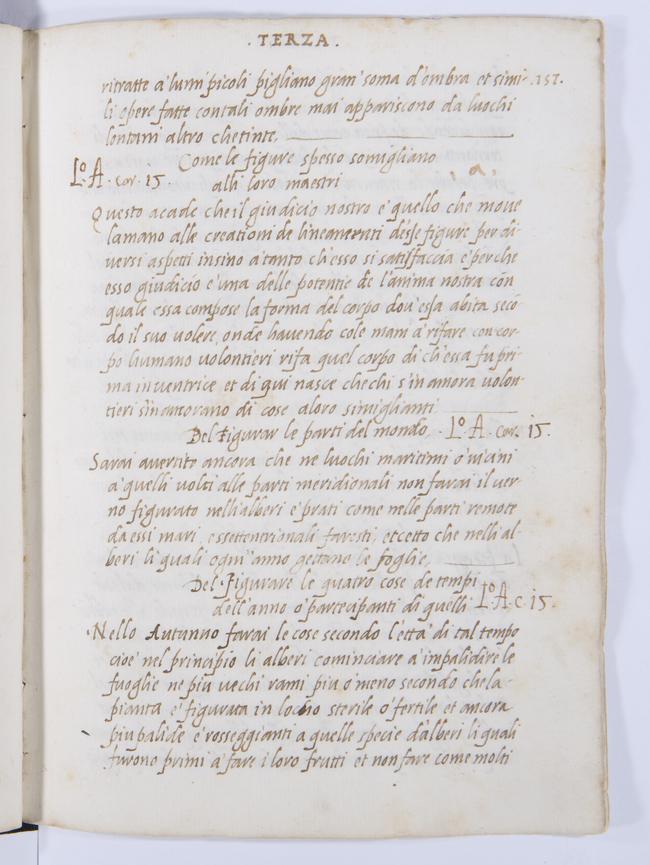 . TERZA .
ritratte a lumi picoli pigliano gran' soma d'ombra et simi- .157.
li opere fatte con tali ombre mai appariscono da luochi
lontani altro che tinte.
Come le figure spesso somigliano
Lº A. car. 15. alli loro maestri
Questo acade che il giudicio nostro e quello che move
la mano alle creationi de lineamenti d'esse figure per di-
versi aspetti insino a tanto ch'esso si satisfaccia e perche
esso giudicio e una delle potentie de l'anima nostra con
quale essa compose la forma del corpo dov'essa abita seco-
do il suo volere, onde havendo co le mani a rifare con cor-
po humano volontieri rifa quel corpo di ch'essa fu pri-
ma inventrice et di qui nasce che chi s'inamora volon-
tieri s'inamorano di cose a loro simiglianti
Del Figurar le parti del mondo. Lº A. car. 15.
Sarai avertito ancora che ne luochi maritimi o vicini
a quelli volti alle parti meridionali non farai il ver-
no figurato nelli alberi e prati come nelle parti remote
da essi mari, e settentrionali faresti, eccetto che nelli al-
beri li quali ogni anno gettano le foglie.
Del Figurare le quatro cose de tempi
dell'anno o partecipanti di quelli Lº A. c. 15.
Nello Autunno farai le cose secondo l'ettà di tal tempo
cioe' nel principio li alberi cominciare a impalidire le
fuoglie ne piu vechi rami piu o meno secondo che la
pianta e' figurata in locho sterile o fertile et ancora
piu palide e rosseggianti a quelle specie d'alberi li quali
furono primi a fare i loro frutti et non fare come molti